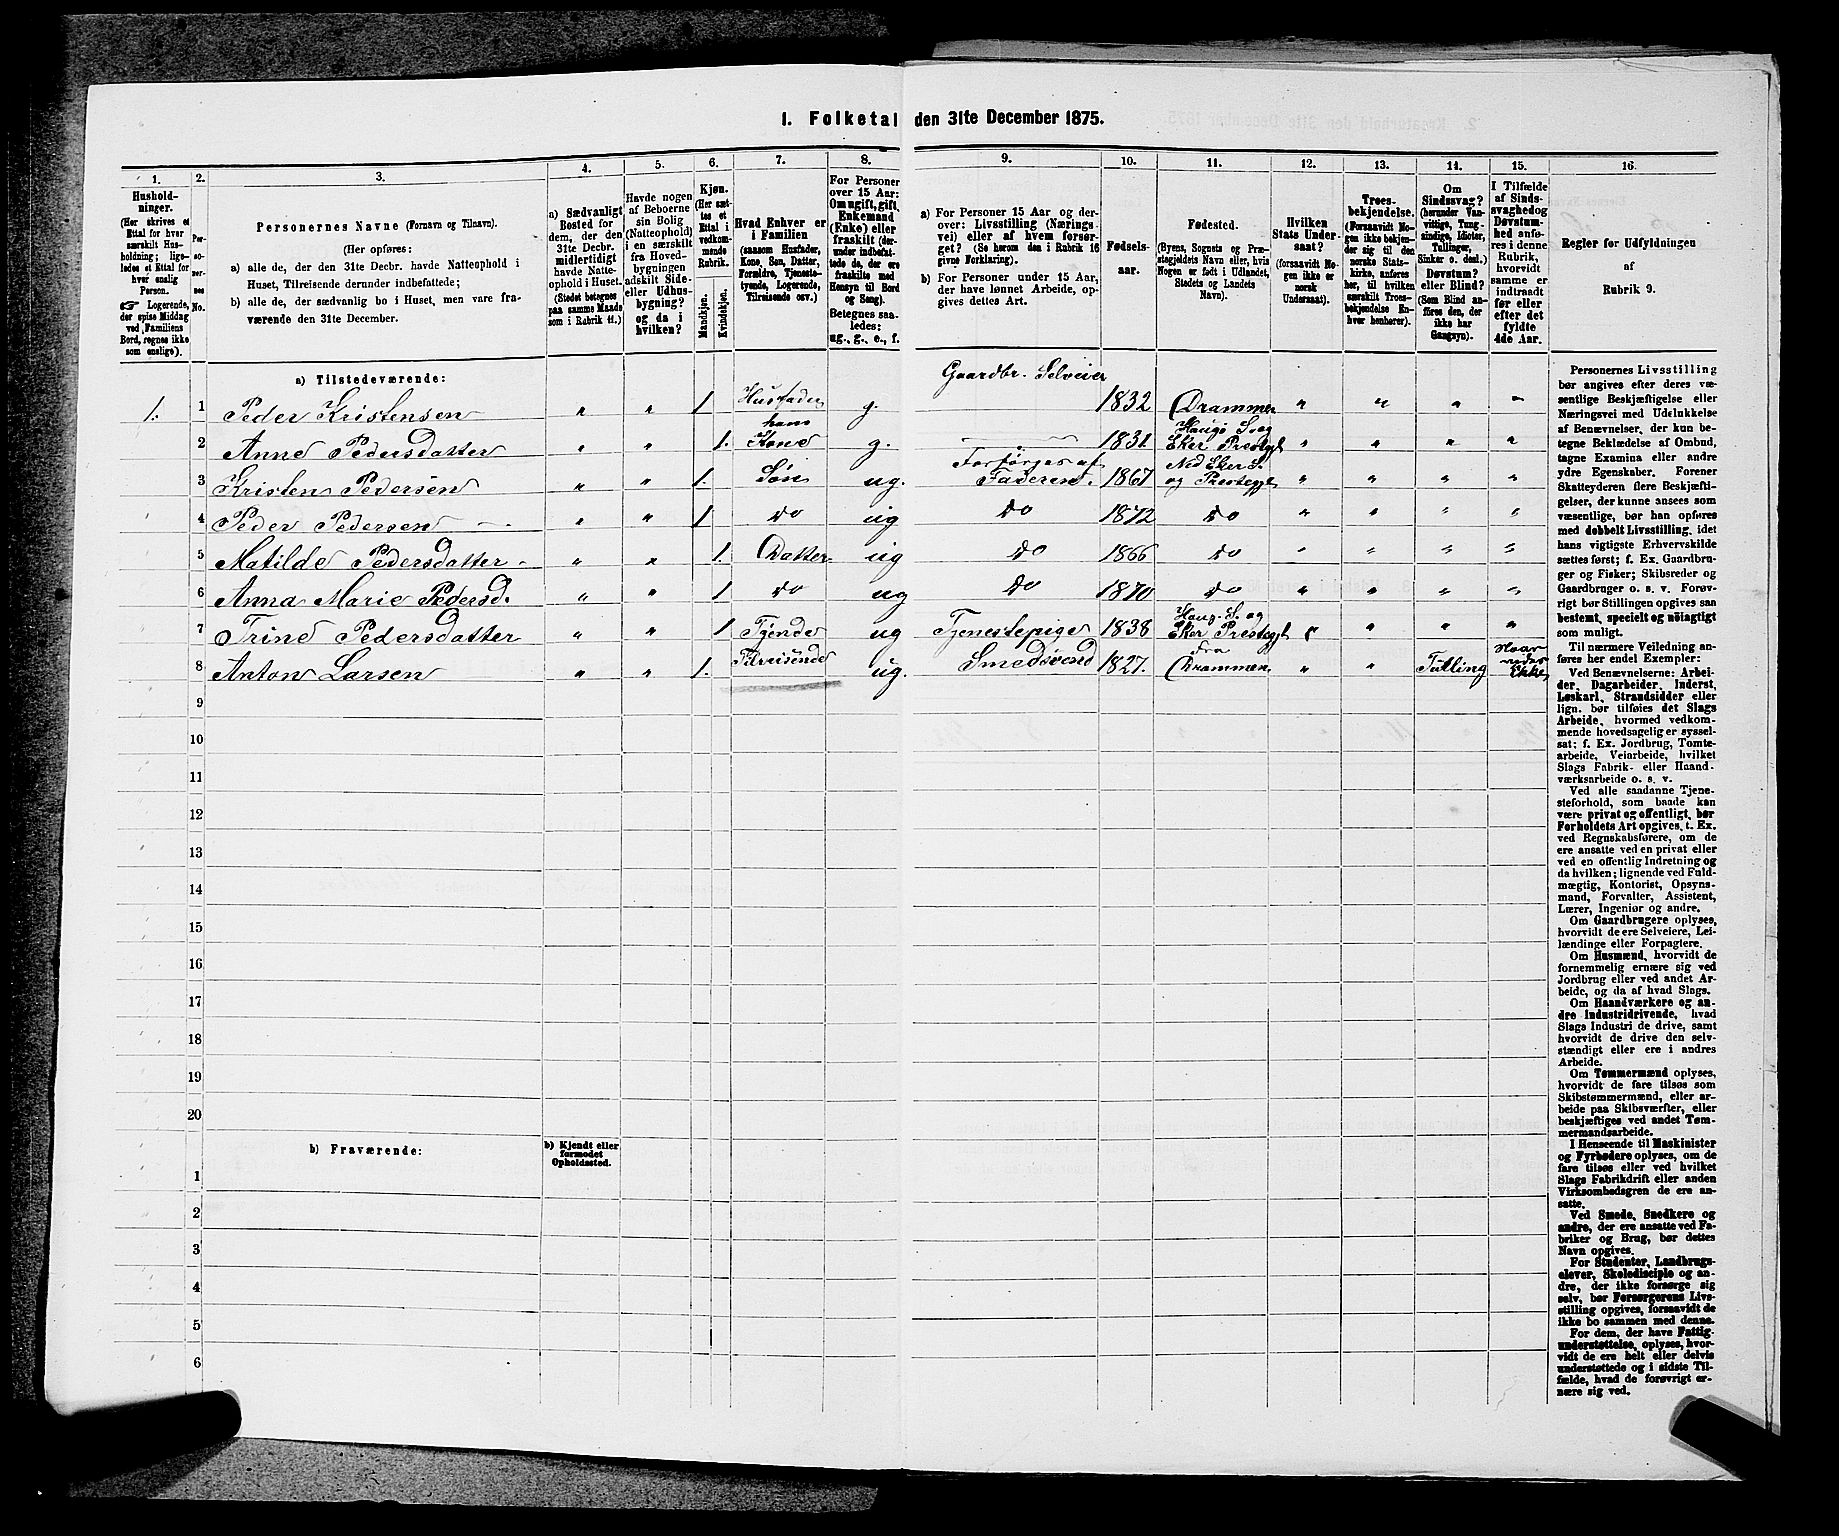 1. Folketal den 31te December 1875.
1.
Hushold-
ninger.
(Her skrives et
Ettal for hver
særskilt Hus-
holdning; lige-
ledes et Ettal for
hver enslig
Person.
☞ Logerende,
der spise Middag
ved Familiens
Bord, regnes ikke
som enslige).
2.
Per-
so-
ner-
nes
No.
3.
Personernes Navne (Fornavn og Tilnavn).
(Her opføres:
a) alle de, der den 31te Decbr. havde Natteophold i
Huset, Tilreisende derunder indbefattede;
b) alle de, der sædvanlig bo i Huset, men vare fra-
værende den 31te December.
4.
a) Sædvanligt
Bosted for
dem, der den
31te Decbr.
midlertidigt
havde Natte-
ophold i Huset.
(Stedet betegnes
paa samme Maade
som i Rubrik 11.)
5.
Havde nogen
af Beboerne
sin Bolig
(Natteophold)
i en særskilt
fra Hoved-
bygningen
adskilt Side-
eller Udhus-
bygning?
og da i
hvilken?
6.
Kjøn.
(Her sæt-
tes et
Ettal i
vedkom-
mende
Rubrik.
Mandkjøn.
Kvindekjøn.
7.
Hvad Enhver er
i Familien
(saasom Husfader,
Kone, Søn, Datter,
Forældre, Tjeneste-
tyende, Logerende,
Tilreisende osv.)
8.
For Personer
over 15 Aar:
Om ugift, gift,
Enkemand
(Enke) eller
fraskilt (der-
under indbefat-
tede de, der ere
fraskilte med
Hensyn til Bord
og Seng).
Betegnes saa-
ledes:
ug., g., e., f.
9.
a) For Personer 15 Aar og der-
over: Livsstilling (Nærings-
vei) eller af hvem forsør-
get? (Se herom den i Rubrik 16
givne Forklaring).
b) For Personer under 15 Aar,
der have lønnet Arbeide, op-
gives dettes Art.
10.
Fødsels-
aar.
11.
Fødested.
(Byens, Sognets og Præ-
stegjeldets Navn eller, hvis
Nogen er født i Udlandet,
Stedets og Landets
Navn).
12.
Hvilken
Stats Under-
saat?
(forsaavidt No-
gen ikke er
norsk
Undersaat).
13.
Troes-
bekjendelse.
(Forsaavidt No-
gen ikke bekjen-
der sig til den
norske Stats-
kirke, anføres
her, til hvilken
særskilt Troes-
bekjendelse En-
hver henhører).
14.
Om
Sindssvag?
(herunder Van-
vittige, Tung-
sindige, Idioter,
Tullinger,
Sinker o. desl.)
Døvstum?
eller Blind?
(Som Blind an-
føres den, der
ikke har
Gangsyn).
15.
I Tilfælde
af Sinds-
svaghed og
Døvstum-
hed anfø-
res i denne
Rubrik,
hvorvidt
samme er
indtraadt
før eller
efter det
fyldte
4de Aar.
16.
Regler for Udfyldningen
af
Rubrik 9.
a) Tilstedeværende:
1. 1 Peder Kristensen „ „ 1 Husfader g. Gaardbr. Selveier 1832 Drammen „ „ „ „
2 Anne Pedersdatter „ „ 1. hans Kone g. 1831 Haugs S. og Eker Prestegjl „ „ „ „
3 Kristen Pedersen „ „ 1. Søn ug. Forsørges af Faderen. 1867 Ned Eker S. og Prestegjl „ „ „ „
4 Peder Pedersen „ „ 1 Do ug Do 1872 Do „ „ „ „
5 Matilde Pedersdatter „ „ 1. Datter ug Do 1866 Do „ „ „ „
6 Anna Marie Pedersd. „ „ 1 Do ug Do 1870 Do „ „ „ „
7 Trine Pedersdatter „ „ 1 Tjende ug Tjenestepige 1838 Haugs S. og Eker Prestegjl „ „ „ „
8 Anton Larsen „ „ 1. Tilreisende ug. Smedsvend 1827. fra Drammen „ „ Tulling
9
10
11
12
13
14
15
16
17
18
19
20
b) Fraværende:
b) Kjendt eller
formodet
Opholdssted.
1
2
3
4
5
6
Personernes Livsstilling
bør angives efter deres væ-
sentlige Beskjæftigelse eller
Næringsvei med Udelukkelse
af Benævnelser, der kun be-
tegne Beklædelse af Ombud,
tagne Examina eller andre
ydre Egenskaber. Forener
Skatteyderen flere Beskjæfti-
gelser, der kunne ansees som
væsentlige, bør han opføres
med dobbelt Livsstilling, idet
hans vigtigste Erhvervskilde
sættes først; f. Ex. Gaardbru-
ger og Fisker; Skibsreder og
Gaardbruger o. s. v. Forøv-
rigt bør Stillingen opgives saa
bestemt, specielt og nöiagtigt
som muligt.
Til nærmere Veiledning an-
føres her endel Exempler:
Ved Benævnelserne: Arbei-
der, Dagarbeider, Inderst,
Løskarl, Strandsidder eller
lign. bør tilføies det Slags
Arbeide, hvormed vedkom-
mende hovedsagelig er syssel-
sat; f. Ex. Jordbrug, Tomte-
arbeide, Veiarbeide, hvilket
Slags Fabrik- eller Haand-
værksarbeide o. s. v.
Ved alle saadanne Tjene-
steforhold, som baade kan
være privat og offentligt, bør
Forholdets Art opgives, t. Ex.
ved Regnskabsførere, om de
ere ansatte ved en privat eller
ved en offentlig Indretning og
da hvilken; lignende ved Fuld-
mægtig, Kontorist, Opsyns-
mand, Forvalter, Assistent,
Lærer, Ingeniør og andre.
Om Gaardbrugere oplyses,
hvorvidt de ere Selveiere, Lei-
lændinge eller Forpagtere.
Om Husmænd, hvorvidt de
fornemmelig ernære sig ved
Jordbrug eller ved andet Ar-
beide, og da af hvad Slags.
Om Haandværkere og an-
dre Industridrivende, hvad
Slags Industri de drive, samt
hvorvidt de drive den selv-
stændigt eller ere i andres
Arbeide.
Om Tømmermænd oplyses,
hvorvidt de fare tilsøs som
Skibstømmermænd, eller ar-
beide paa Skibsværfter, eller
beskjæftiges ved andet Tøm-
mermandsarbeide.
I Henseende til Maskinister
og Fyrbødere oplyses, om de
fare tilsøs eller ved hvilket
Slags Fabrikdrift eller anden
Virksomhedsgren de ere an-
satte.
Ved Smede, Snedkere og
andre, der ere ansatte ved Fa-
briker og Brug, bør dettes
Navn opgives.
For Studenter, Landbrugs-
elever, Skoledisciple og an-
dre, der ikke forsørge sig
selv, bør Forsørgerens Livs-
stilling opgives, forsaavidt de
ikke bo sammen med denne.
For dem, der have Fattig-
understøttelse, oplyses, hvor-
vidt de ere helt eller delvis
understøttede og i sidste Til-
fælde, hvad de forøvrigt er-
nære sig ved.